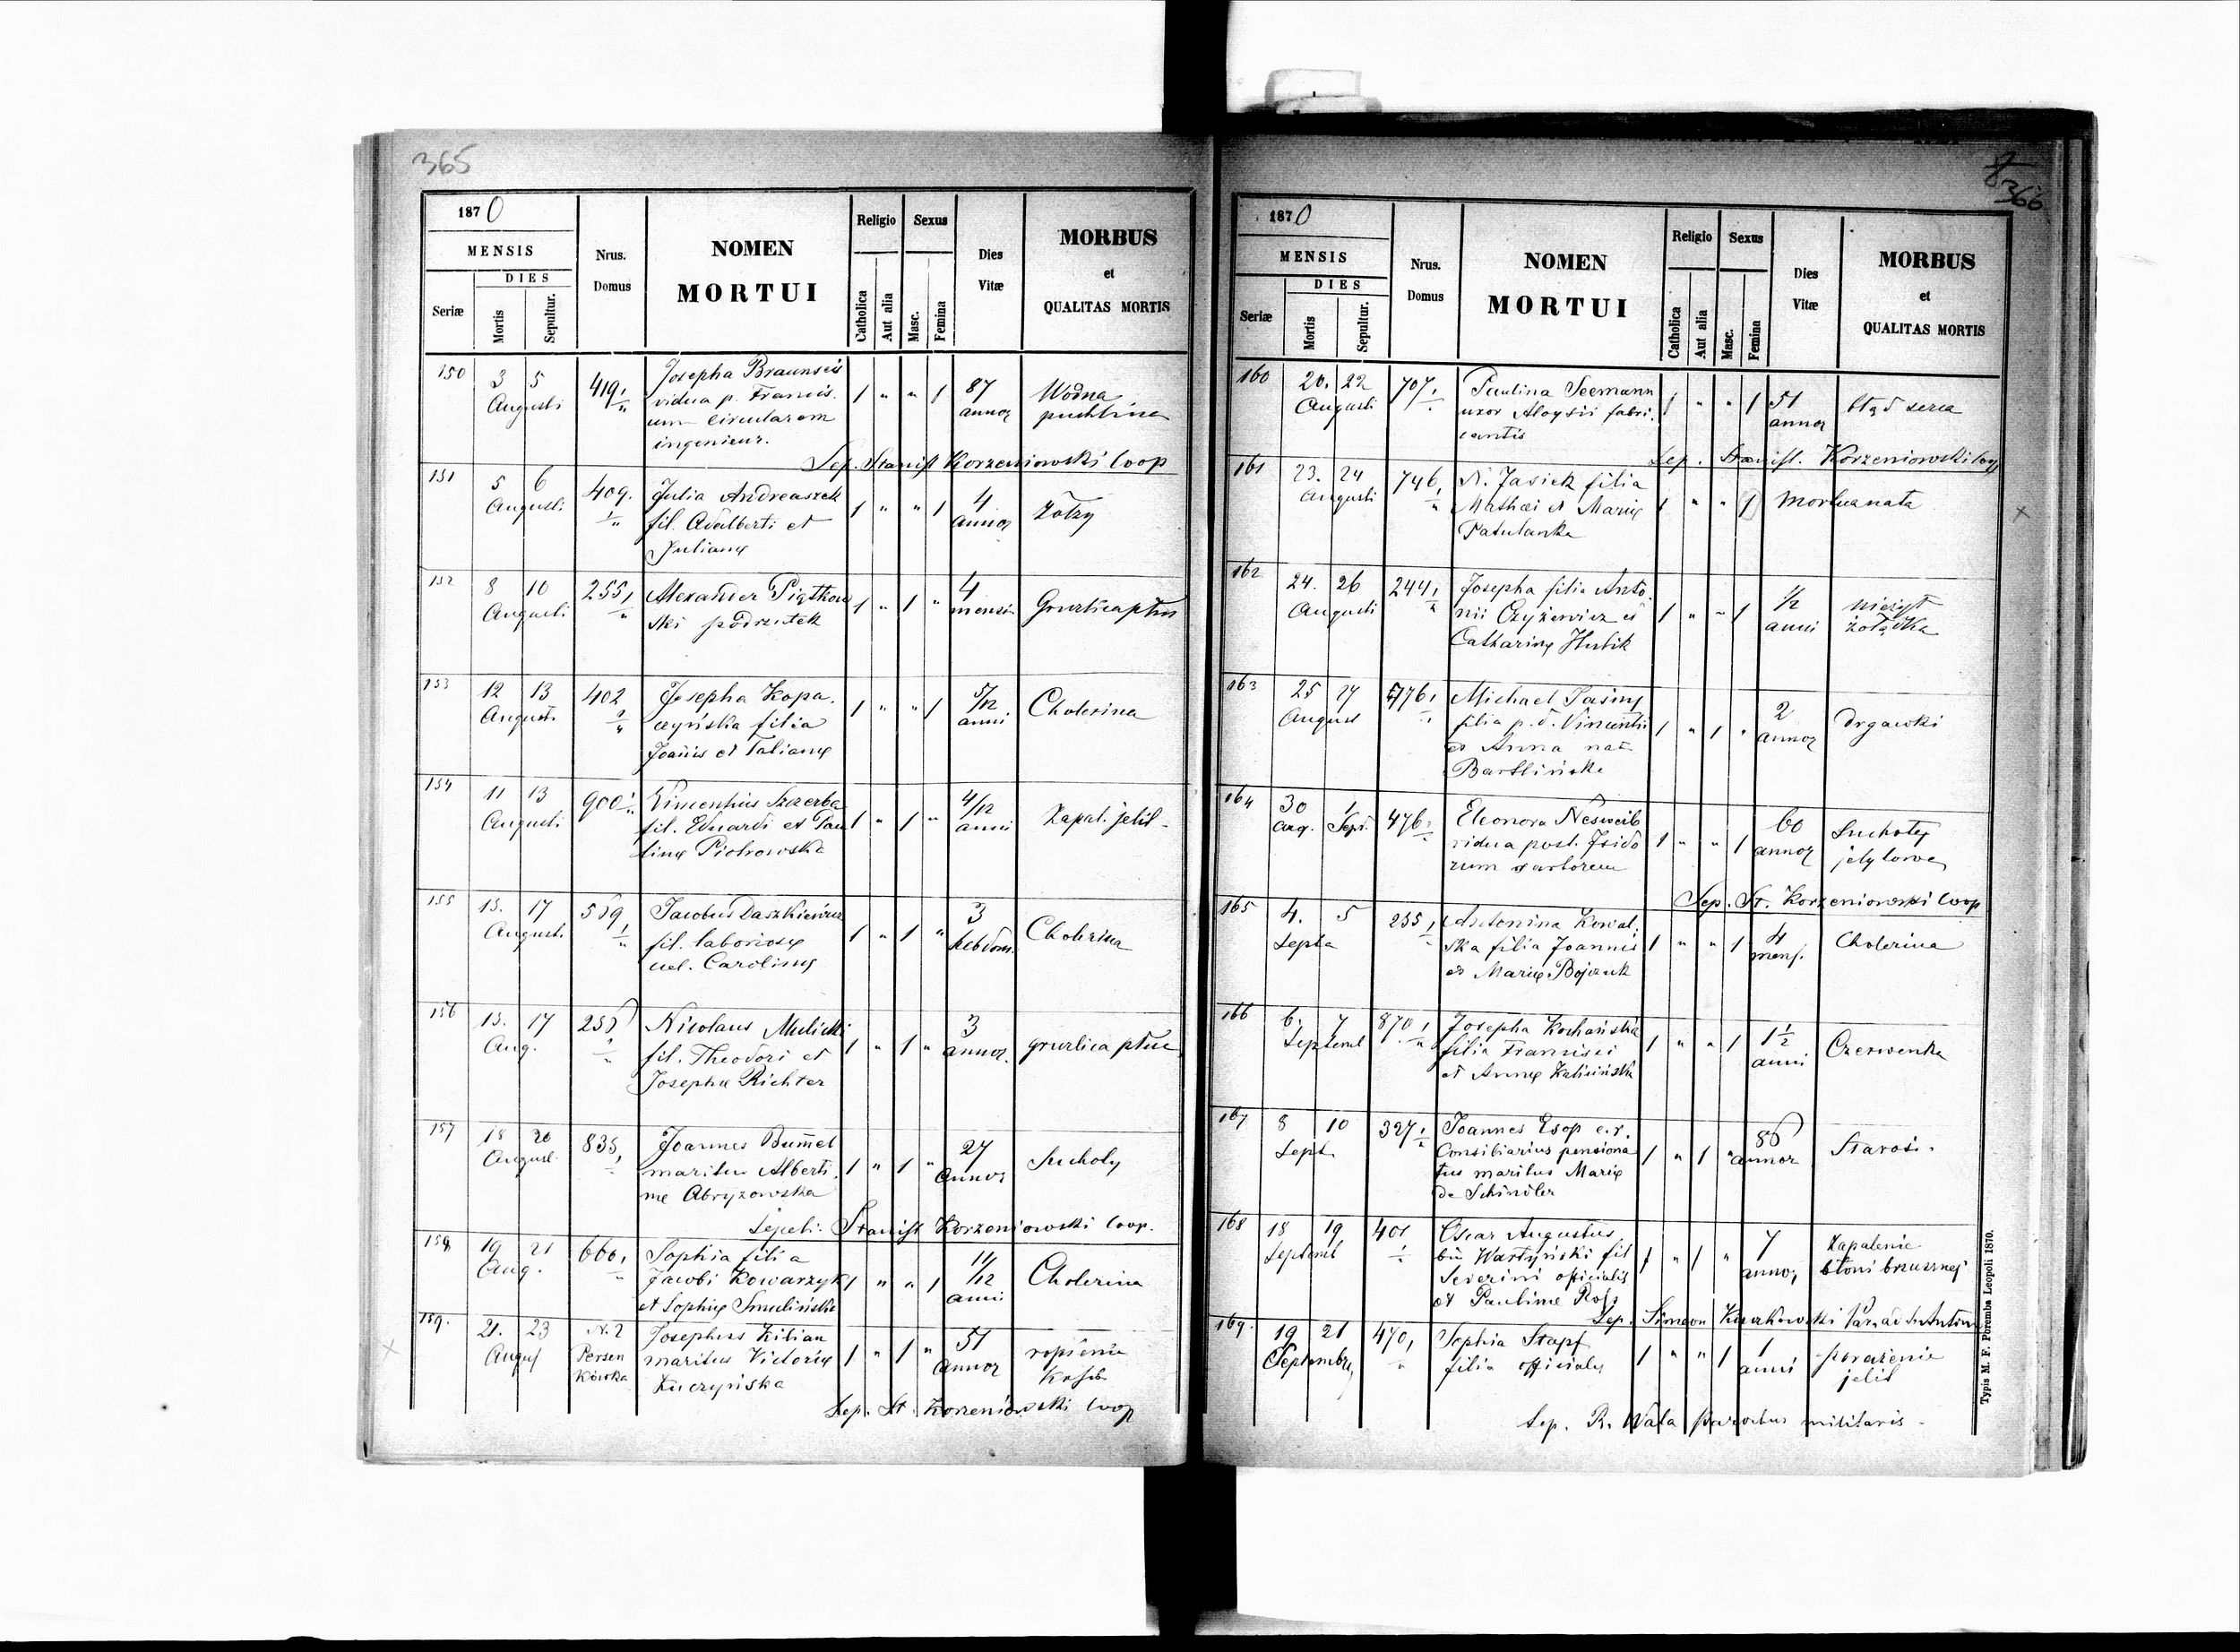 365
1870
MENSIS
DIES
Seriæ
Mortis
Sepultur.
Nrus.
Domus
NOMEN
MORTUI
Religio
Catholica
Aut alia
Sexus
Masc.
Femina
Dies
Vitæ
MORBUS
et
QUALITAS MORTIS
150
3 5
Augusti
419
Josepha
vidua p. Francis.
circularem
ingenieur.
1 " " 1
87
annor
Wodna
puchlina
Sep. Stanisł Korzeniowski Coop
151
5 6
Augusti
409.
Julia Andreaszek
fil. Adalberti et
Julianę
1 " " 1
4
annor
Zołzy
152
8 10
Augusti
255
Alexander Piątkow
ski podrzutek
1 " 1 "
4
mensi
Gruźlica płuc
153
12 13
August.
402
Josepha Kopa.
czyńska filia
Joañis et Tatianę
1 " " 1
5/12
anni
Cholerina
154
11 13
Augusti
900
Vincentius Szczerba
fil. Eduardi et Pau
linę Piotrowska
1 " 1 "
4/12
anni
Zapal. jelit
155
15. 17
August.
Jacobus Daszkiewicz
fil. laboriosę
Carolinę
1 " 1 "
3
hebdom.
Cholerina
156
15. 17
Aug.
Nicolaus Mulicki
fil. Theodori et
Josephæ Richter
1 " 1 "
3
annor.
gruzlica płuc
157
18 20
August.
835
Joannes Bum̄el
maritus Alberti
næ Abryzowska
1 " 1 "
27
Annor
Suchoty
Sepeli. Stanisł Korzeniowski Coop.
158
19 21
Aug.
660
Sophia filia
Jacobi Kowarzyk
et Sophię Smulińska
1 " " 1
11/12
anni
Cholerina
159.
21. 23
August
N. 2
Persen
kówka
Josephus Kilian
maritus Victorię
Kuczyńska
1 " 1 "
51
Annor
ropienie
Sep. St. Korzeniowski Coop
366
1870
MENSIS
DIES
Seriæ
Mortis
Sepultur.
Nrus.
Domus
NOMEN
MORTUI
Religio
Catholica
Aut alia
Sexus
Masc.
Femina
Dies
Vitæ
MORBUS
et
QUALITAS MORTIS
160
20. 22
Augusti
707
Paulina Seemann
uxor Aloysii fabri.
cantis
1 " " 1
51
annor
błąd serca
Sep. Stanisł. Korzeniowski Coop
161
23. 24
Augusti
746
N. Jasiek filia
Mathæi et Marię
Patulanka
1 " " 1
Mortuanata
162
24. 26
Augusti
244
Josepha filia Anto.
nii Czyżewicz et
Catharinę Hulik
1 " " 1
1/2
anni
nieżyt
żołądka
163
25 27
August
776
Michael
filia p. d. Vincentii
et Anna nat
1 " 1 "
2
annor
Drgawki
164
30 1
Aug. Sept.
476
Eleonora Nesweib
vidua post. Isido
rum sartorem
1 " " 1
60
annor
Suchoty
Sep. St. Korzeniowski Coop
165
4. 5
Septa
255
Antonina Kowal.
ska filia Joannis
et Marię Bojczuk
1 " " 1
4
mens.
Cholerina
166
6. 7
Septemb
870
Josepha Kochańska
filia Francisci
et Annę Kalicińska
1 " " 1
1 1/2
anni
Czerwonka
167
8 10
Sept
327
Joannes Esop c.r.
Consiliarius pensiona
tus maritus Marię
de Schindler
1 " 1 "
annor
Starość
168
18 19
Septemb
401
Oscar Augustus
Severini officialis
et Paulinæ
1 " 1 "
7
annor
Zapalenie
błoni brzusznej
Sep. Simeon
169.
19 21
Septembri
470
Sophia Stapf
filia officialis
1 " " 1
1
anni
porażenie
jelit
Sep. R. Wala Parochus militaris
Typis M. F. Poremba Leopoli 1870.